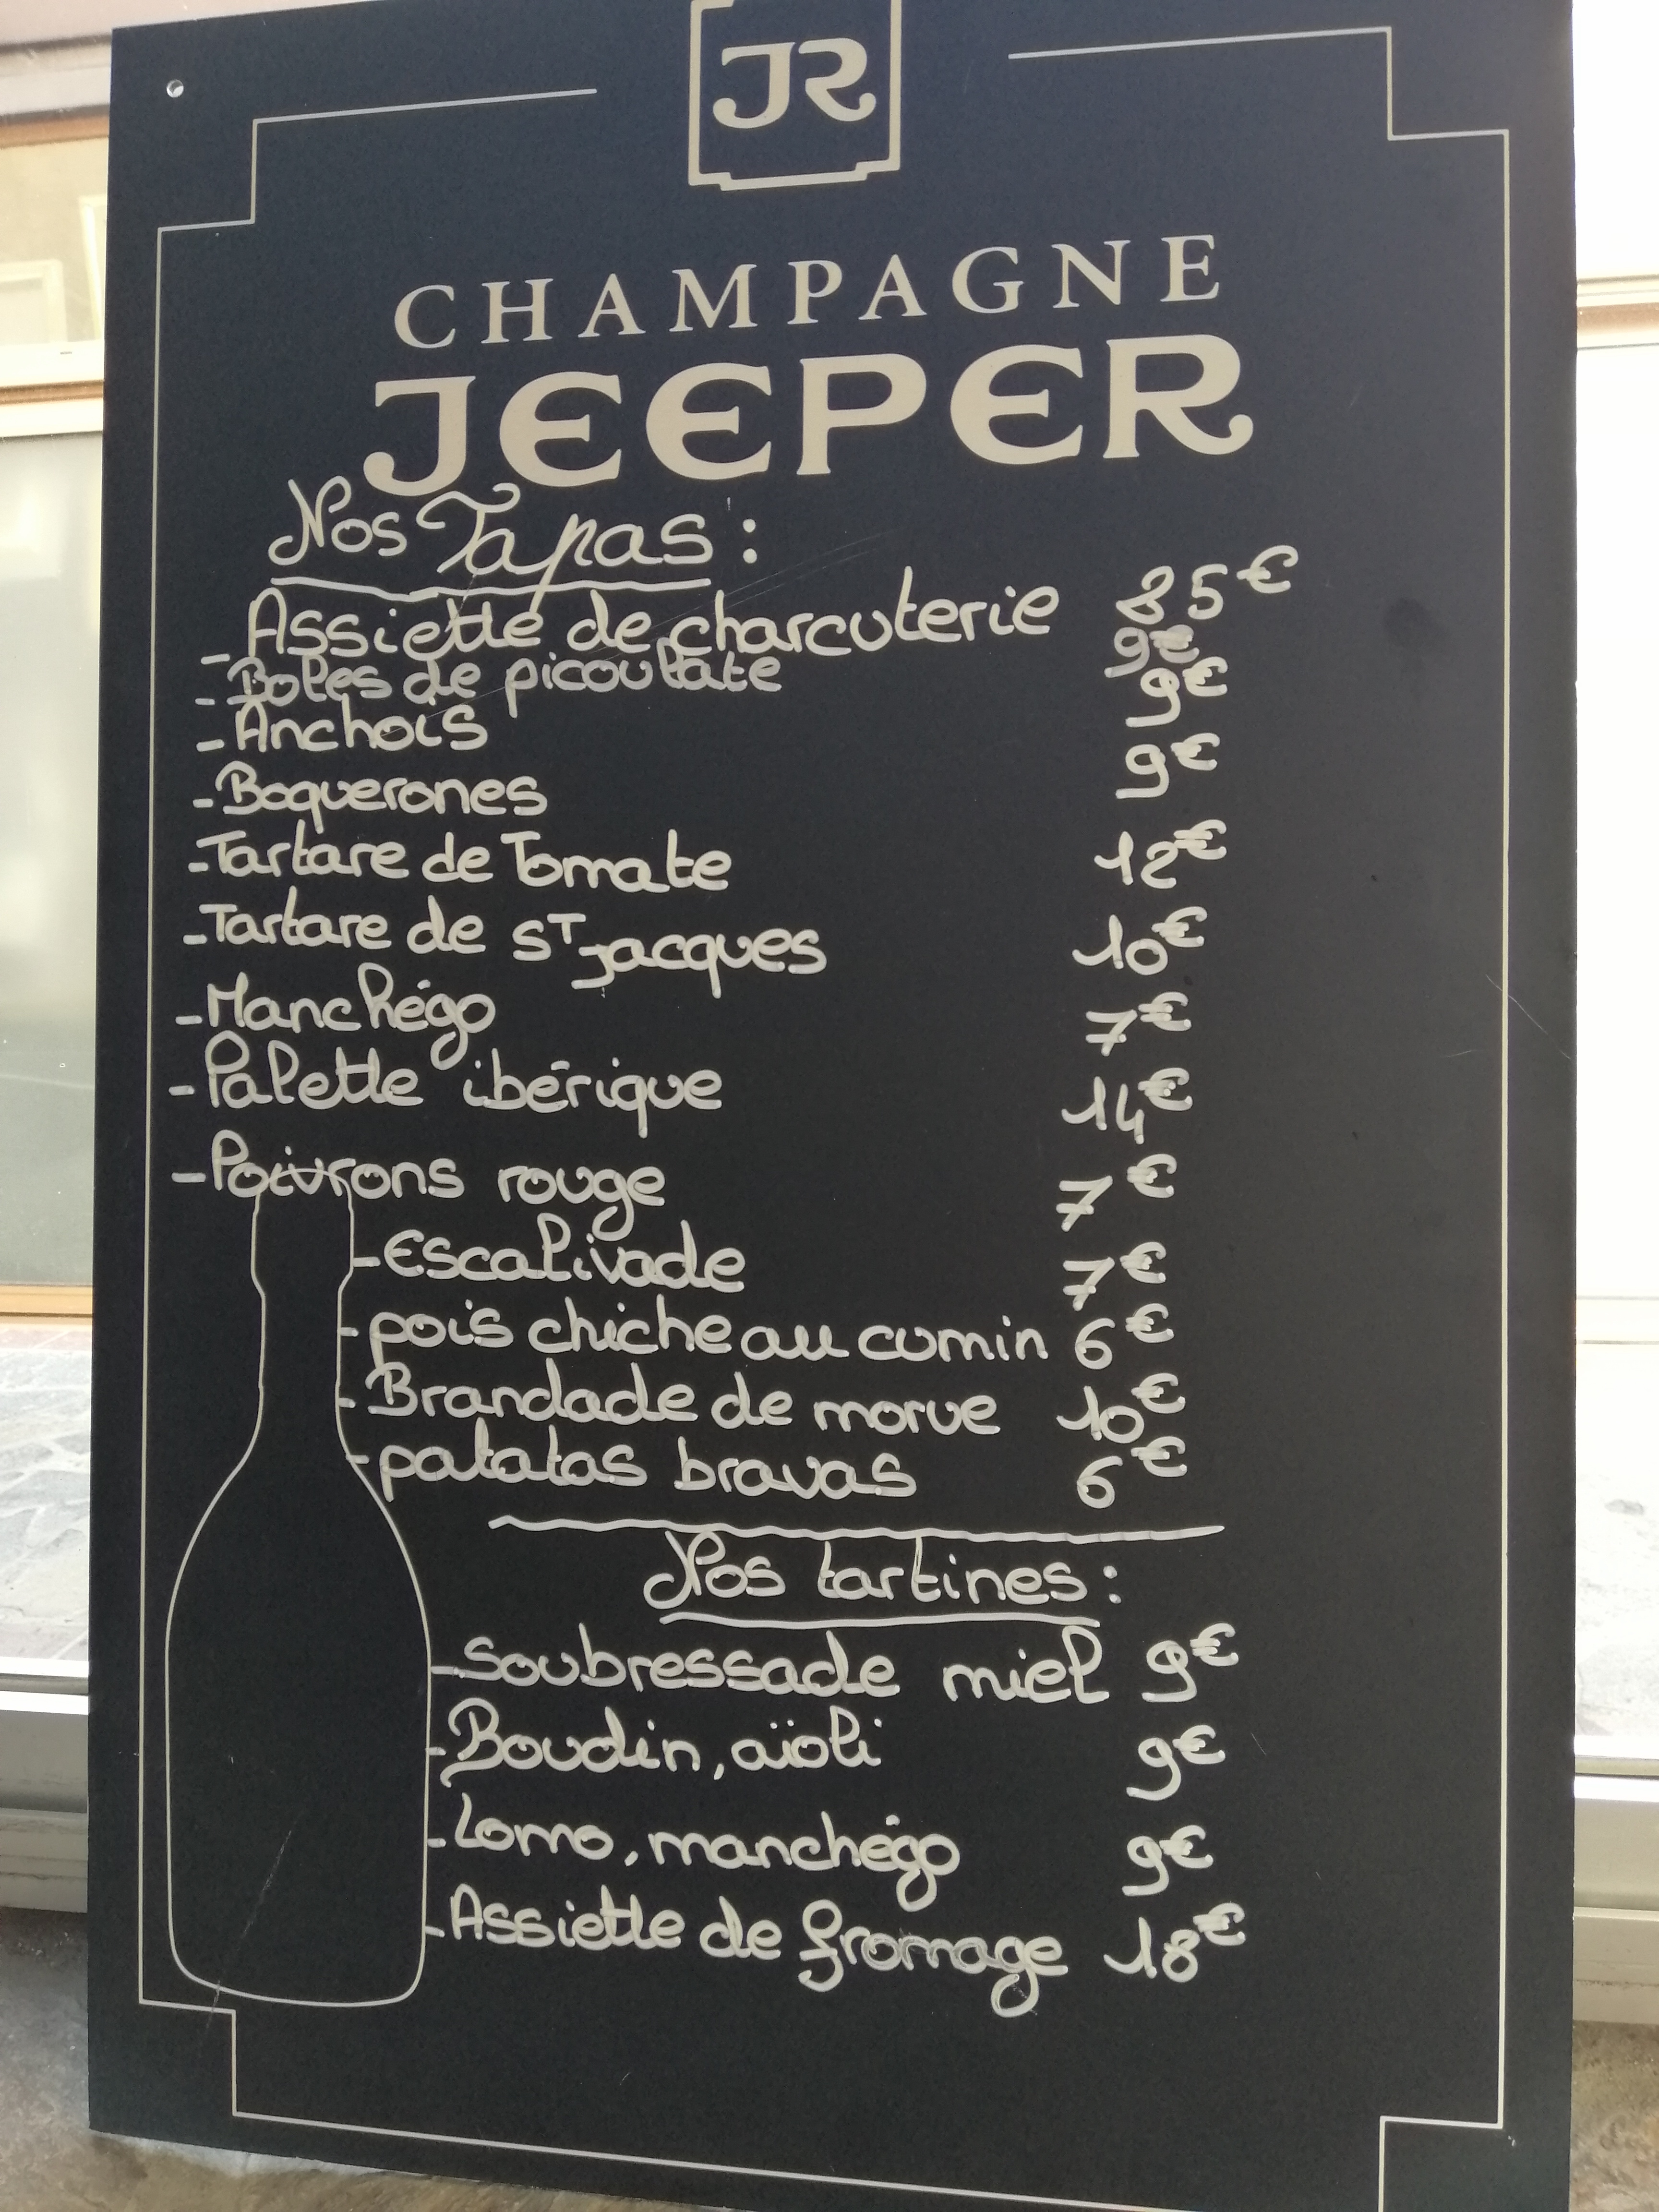 JR
CHAMPAGNE
JEEPER
Nos Tapas :
- Assiette de charcuterie 25€
- Boles de picoulate 9€
- Anchois 9€
- Boquerones 9€
- Tartare de Tomate 12€
- Tartare de ST Jacques 10€
- Manchégo 7€
- Palette ibérique 14€
- Poivrons rouge 7€
- Escalivade 7€
- pois chiche au cumin 6€
- Brandade de morue 10€
- patatas bravas 6€
Nos tartines :
- Soubressade miel 9€
- Boudin, aïoli 9€
- Lomo, manchégo 9€
- Assiette de fromage 18€